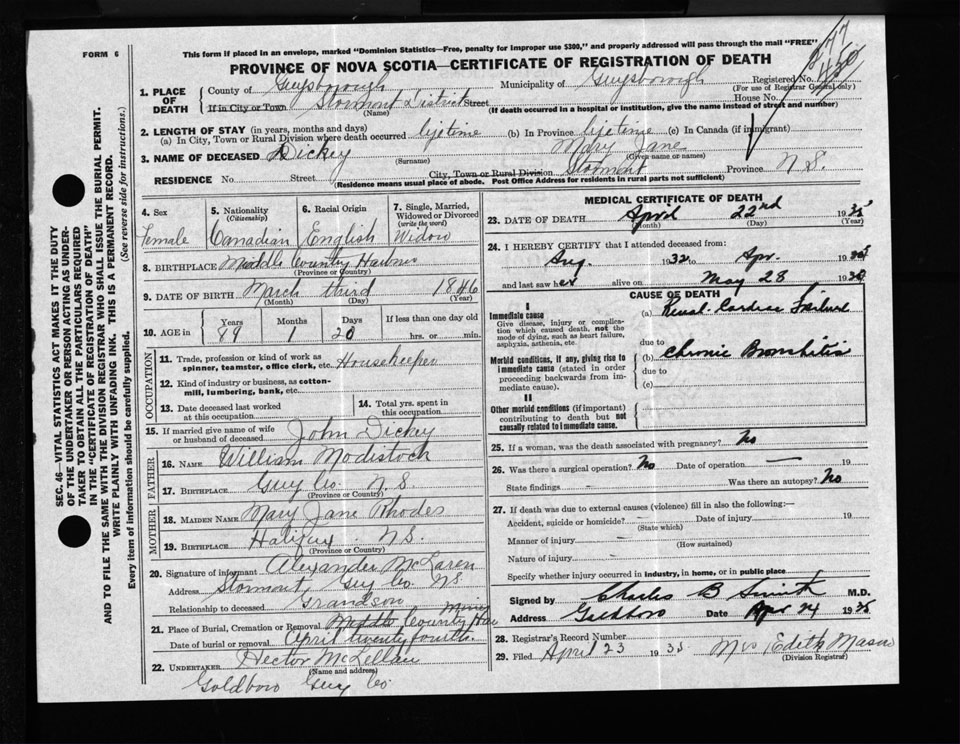 FORM 6
This form if placed in an envelope, marked "Dominion Statistics—Free, penalty for improper use $300," and properly addressed will pass through the mail "FREE"
PROVINCE OF NOVA SCOTIA—CERTIFICATE OF REGISTRATION OF DEATH
1. PLACE OF DEATH
County of Guysborough Municipality of Guysborough Registered No.
(For use of Registrar General only)
If in City or Town Stormont District Street House No.
(Name) (If death occurred in a hospital or institution, give the name instead of street and number)
2. LENGTH OF STAY (in years, months and days)
(a) In City, Town or Rural Division where death occurred lifetime (b) In Province lifetime (c) In Canada (if immigrant)
3. NAME OF DECEASED Dickey Mary Jane
(Surname) (Given name or names)
RESIDENCE No. Street City, Town or Rural Division Stormont Province N.S.
(Residence means usual place of abode. Post Office Address for residents in rural parts not sufficient)
4. Sex Female
5. Nationality (Citizenship) Canadian
6. Racial Origin English
7. Single, Married, Widowed or Divorced (write the word) Widow
8. BIRTHPLACE Middle Country Harbor
(Province or Country)
9. DATE OF BIRTH March third 1846
(Month) (Day) (Year)
10. AGE in Years 89 Months 1 Days 20 If less than one day old hrs. or min.
OCCUPATION
11. Trade, profession or kind of work as spinner, teamster, office clerk, etc. Housekeeper
12. Kind of industry or business, as cotton-mill, lumbering, bank, etc.
13. Date deceased last worked at this occupation
14. Total yrs. spent in this occupation
15. If married give name of wife or husband of deceased John Dickey
FATHER
16. NAME William Modistoch
17. BIRTHPLACE Guy Co. N.S
(Province or Country)
MOTHER
18. MAIDEN NAME Mary Jane Rhodes
19. BIRTHPLACE Halifax N.S.
(Province or Country)
20. Signature of informant Alexander McLaren
Address Stormont, Guy Co. N.S
Relationship to deceased Grandson
21. Place of Burial, Cremation or Removal Middle Country Har
Date of burial or removal April twenty fourth.
22. UNDERTAKER Hector McLellan
(Name and address)
Goldboro Guy Co
MEDICAL CERTIFICATE OF DEATH
23. DATE OF DEATH April 22nd 1935
(Month) (Day) (Year)
24. I HEREBY CERTIFY that I attended deceased from:
Aug. 1932 to Apr.
and last saw her alive on May 28
CAUSE OF DEATH
I
Immediate cause
Give disease, injury or complication which caused death, not the mode of dying, such as heart failure, asphyxia, asthenia, etc.
(a) Renal-Cardiac Failure
due to
Morbid conditions, if any, giving rise to immediate cause (stated in order proceeding backwards from immediate cause).
(b) Chronic Bronchitis
due to
(c)
II
Other morbid conditions (if important) contributing to death but not causally related to immediate cause.
25. If a woman, was the death associated with pregnancy? No
26. Was there a surgical operation? No Date of operation — 19
State findings – Was there an autopsy? No
27. If death was due to external causes (violence) fill in also the following:—
Accident, suicide or homicide? – Date of injury 19
(State which)
Manner of injury –
(How sustained)
Nature of injury –
Specify whether injury occurred in industry, in home, or in public place
Signed by Charles B Smith M.D.
Address Goldboro Date Apr 24 1935
28. Registrar's Record Number
29. Filed April 23 1935 Mrs Edith Mason
(Division Registrar)
SEC. 46—VITAL STATISTICS ACT MAKES IT THE DUTY
OF THE UNDERTAKER OR PERSON ACTING AS UNDER-
TAKER TO OBTAIN ALL THE PARTICULARS REQUIRED
IN THE "CERTIFICATE OF REGISTRATION OF DEATH"
AND TO FILE THE SAME WITH THE DIVISION REGISTRAR WHO SHALL ISSUE THE BURIAL PERMIT.
WRITE PLAINLY WITH UNFADING INK. THIS IS A PERMANENT RECORD.
Every item of information should be carefully supplied. (See reverse side for instructions.)